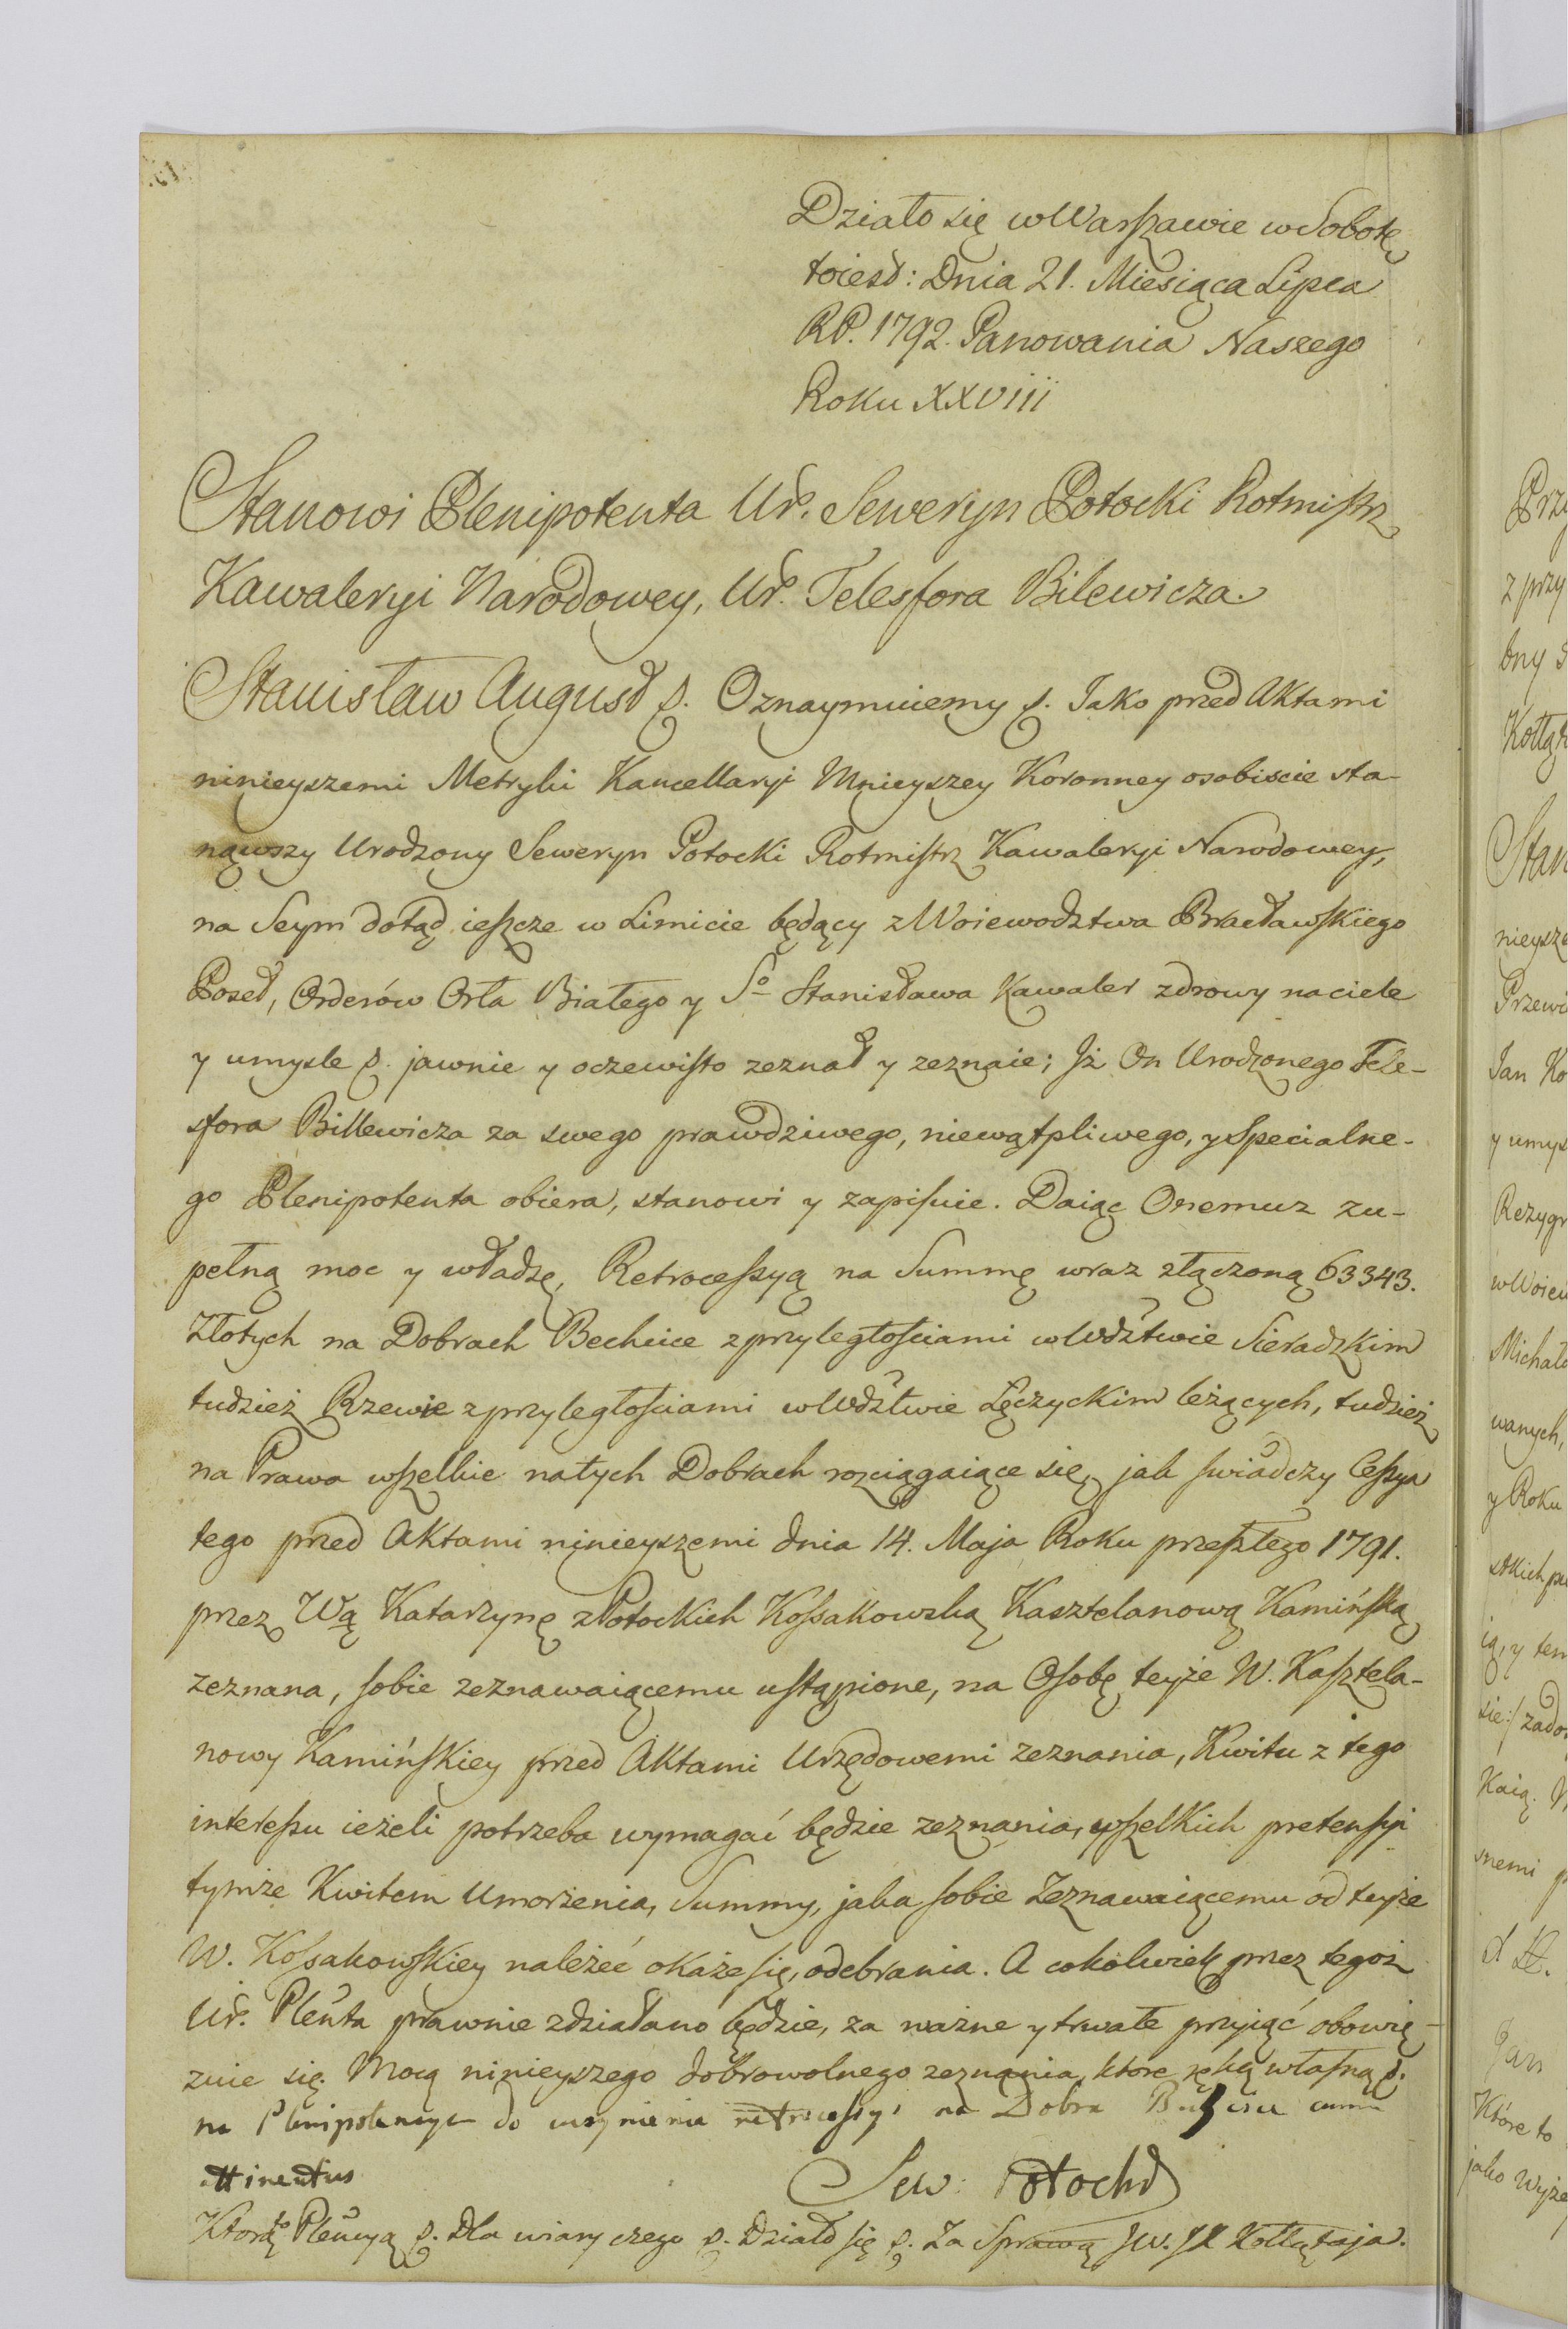 Działo się w Warszawie w Sobotę
toiest: Dnia 21. Miesiąca Lipca
RP. 1792. Panowania Naszego
Roku XXVIII
Stanowi Plenipotenta Ur. Seweryn Potocki Rotmistrz
Kawaleryi Narodowey, Ur. Telesfora Bilewicza.
Stanisław August p. Oznaymuiemy p. Jako przed Aktami
ninieyszemi Metryki Kancellaryi Mnieyszey Koronney osobiscie sta-
nąwszy Urodzony Seweryn Potocki Rotmistrz Kawaleryi Narodowey,
na Seym dotąd ieszcze w Limicie będący z Woiewodztwa Bracławskiego
Poseł, Orderów Orła Białego y So Stanisława Kawaler zdrowy na ciele
y umysle p. jawnie y oczewisto zeznał y zeznaie; Iż On Urodzonego Tele-
sfora Billewicza za swego prawdziwego, niewątpliwego, y Specialne-
go Plenipotenta obiera, stanowi y zapisuie. Daiąc Onemuz zu-
pełną moc y władzę, Retrocessyą na Summę wraz złączoną 63343.
Złotych na Dobrach Bechcice z przyległościami w Wdztwie Sieradzkim
tudzież Rzewie z przyległościami w Wdztwie Łęczyckim leżących, tudzież
na Prawa wszelkie na tych Dobrach rozciągaiące się, jak swiadczy Cessya
tego przed Aktami ninieyszemi dnia 14. Maja Roku przeszłego 1791.
przez Wą Katarzynę z Potockich Kossakowską Kasztelanową Kamińską
zeznana, sobie zeznawaiącemu ustąpione, na Osobę teyże W. Kasztela-
nowy Kamińskiey przed Aktami Urzędowemi zeznania, Kwitu z tego
interessu ieżeli potrzeba wymagać będzie zeznania, wszelkich pretensyi
tymże Kwitem Umorżenia, Summy, jaka sobie Zeznawaiącemu od teyże
W. Kossakowskiey należeć okaże się, odebrania. A cokolwiek przez tegoż
Ur. Pleńta prawnie zdziałano będzie, za ważne y trwałe przyiąć obowię-
zuie się. Mocą ninieyszego dobrowolnego zeznania, ktore ręką własną p.
na Plenipotencyę do uczynienia retrocessyi na Dobra cum
attinentiis
Sew: Potocki
Ktorąto Pleńcyą p. Dla wiary czego p. Działo się p. Za Sprawą JW. JX Kołłątaja.